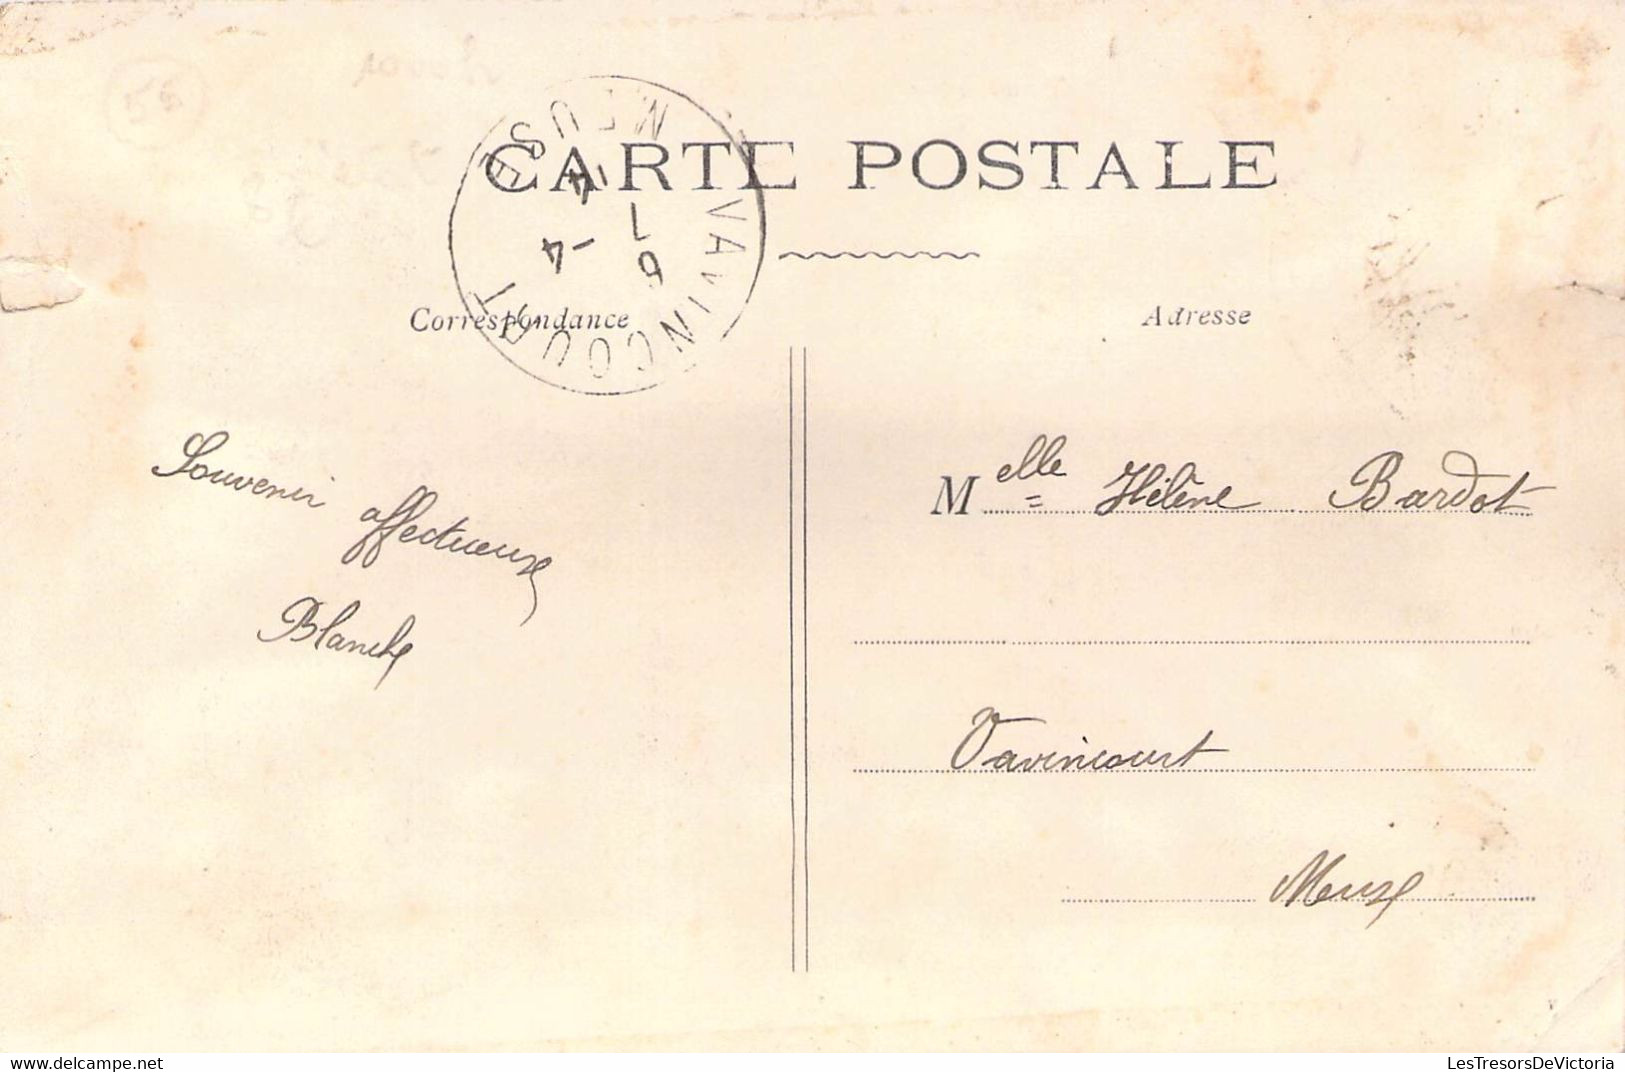 CARTE POSTALE
VAVINCOURT
MEUSE
Correspondance
Adresse
Souvenir
affectueuse
Blanche
Melle = Hélène Bardot
Vavincourt
Meuse
55
LesTresorsDeVictoria